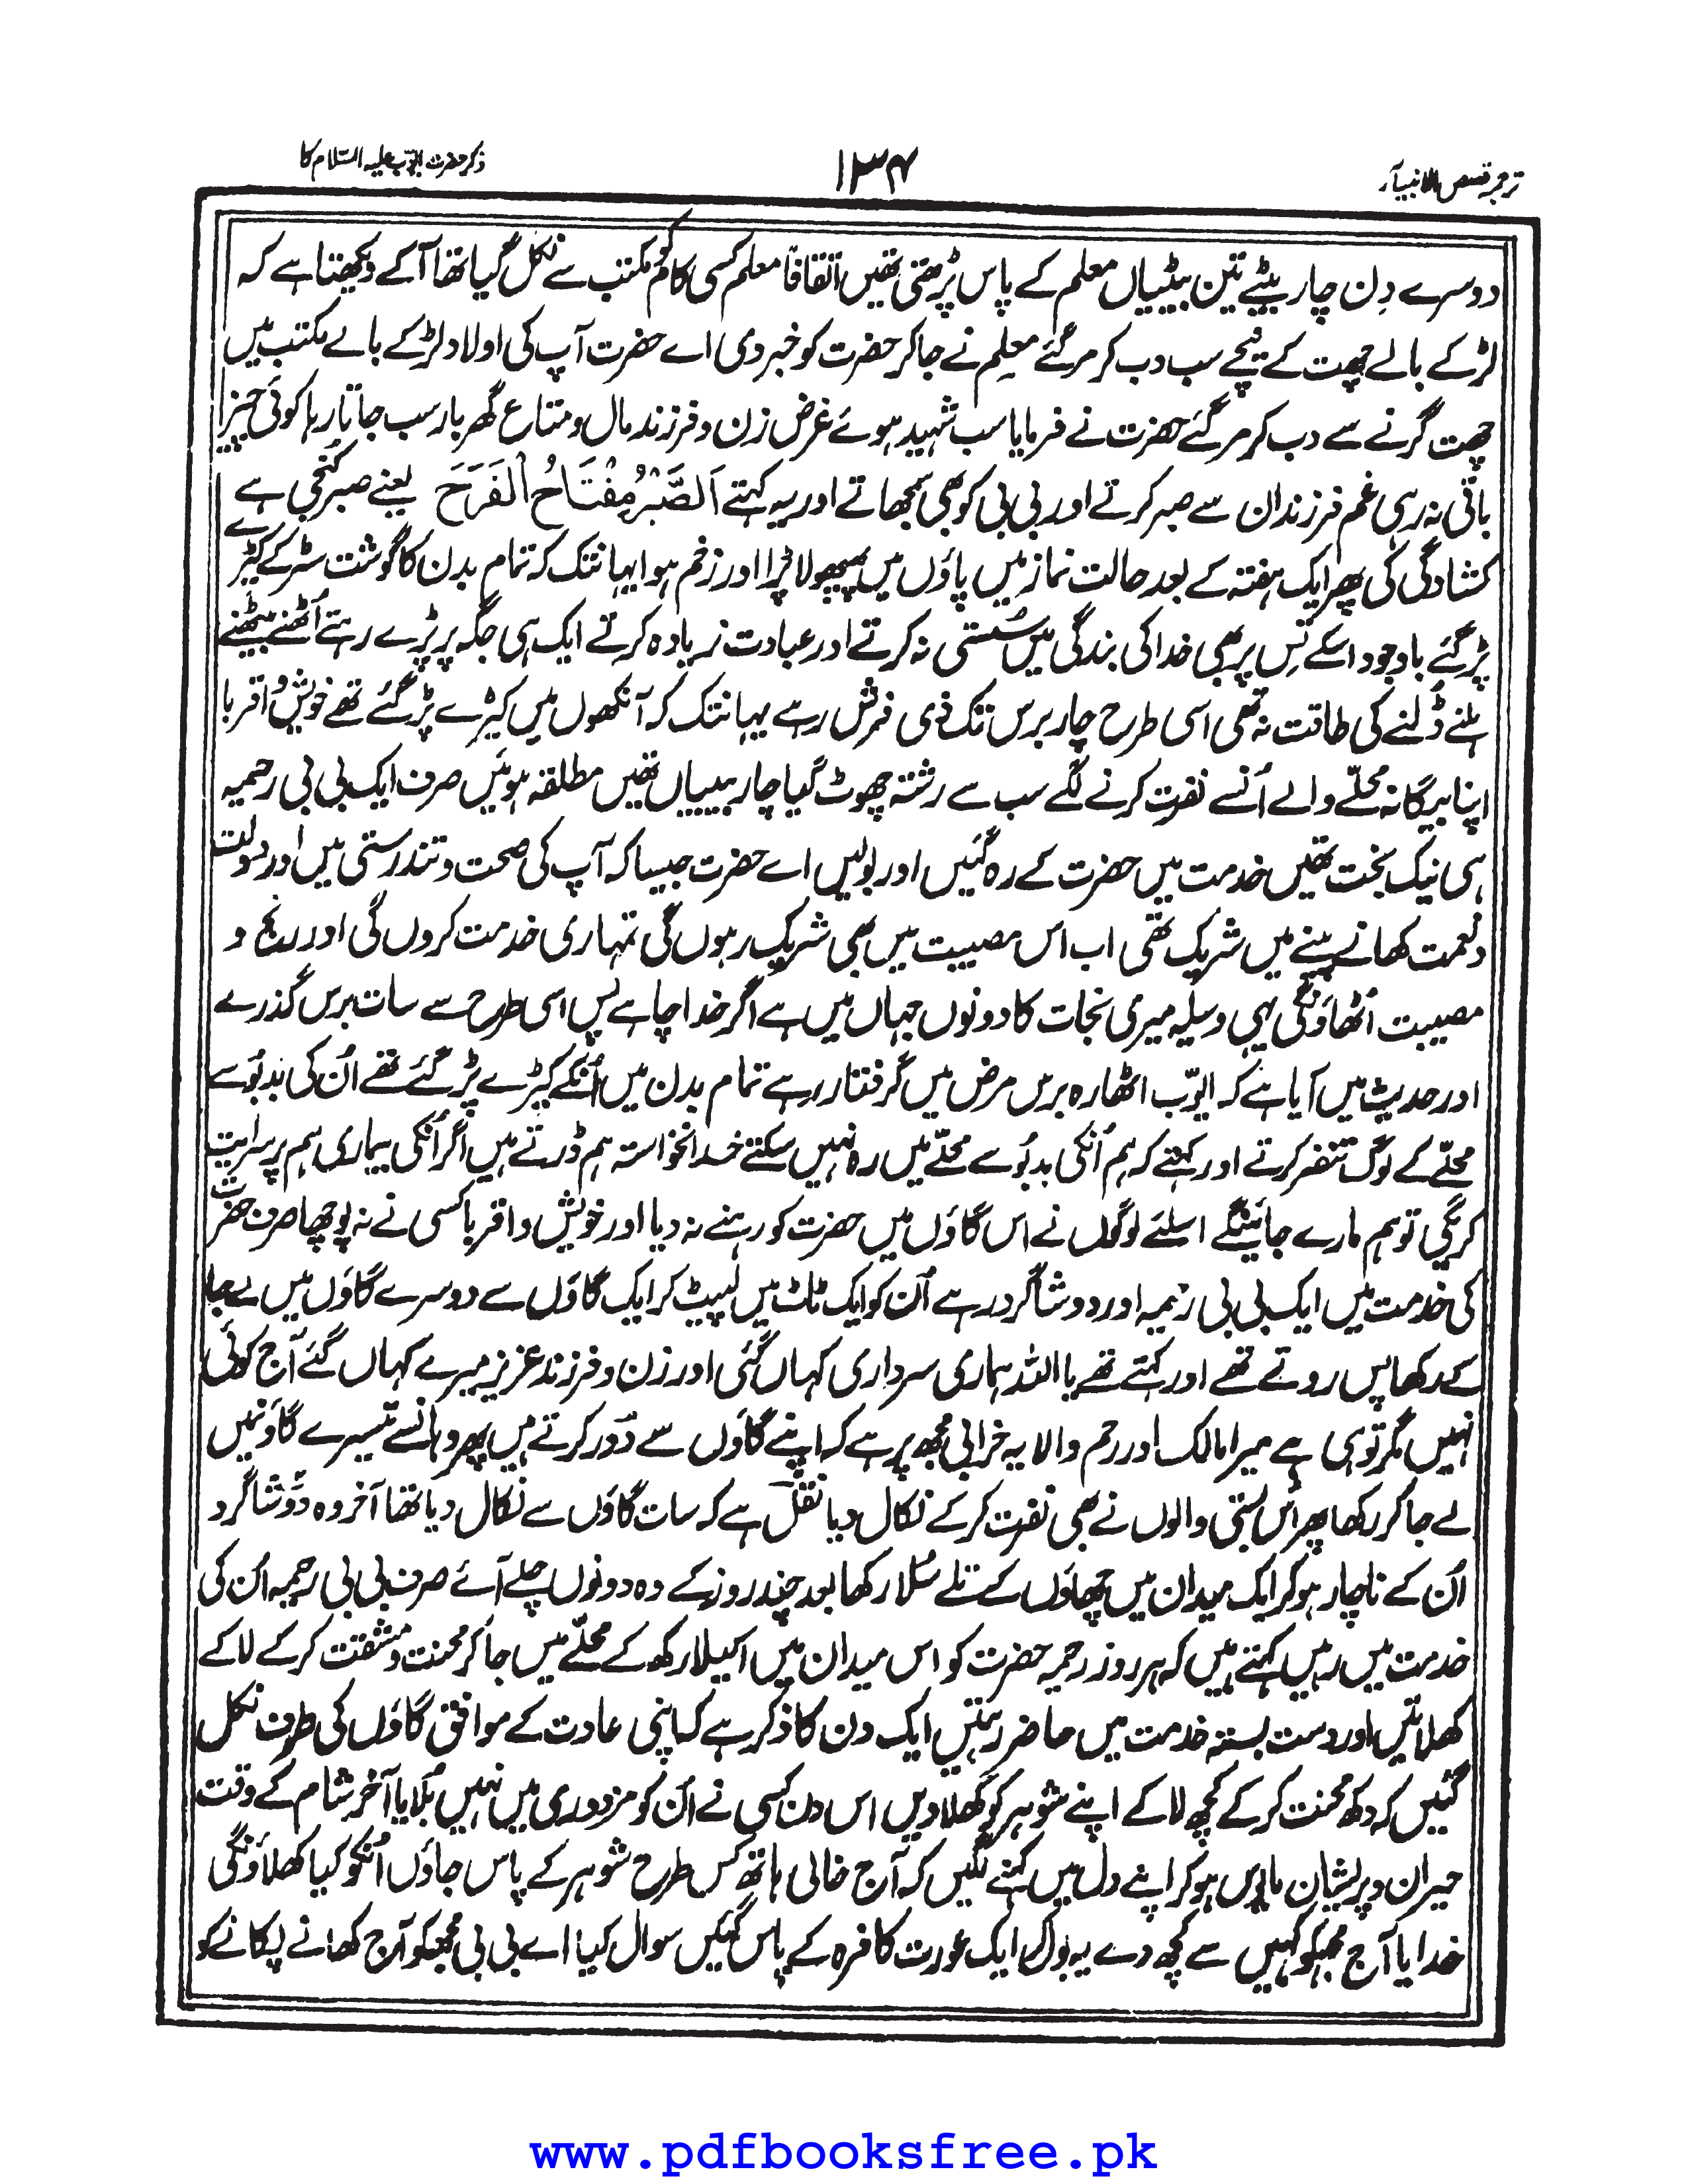 ترجمہ قصص الانبیآر
۱۳۴
ذکر حضرت ایوّب علیہ السّلام کا
دوسرے دِن چار بیٹے تین بیٹیاں معلم کے پاس پڑھتی تھیں اتفاقاً معلم کسی کام کو مکتب سے نکل گیا تھا آکے دیکھتا ہے کہ
لڑکے بالے چھت کے نیچے سب دب کر مر گئے معلم نے جا کر حضرت کو خبر دی اے حضرت آپ کی اولاد لڑکے بالے مکتب میں
چھت گرنے سے دب کر مر گئے حضرت نے فرمایا سب شہید ہوئے غرض زن و فرزند مال و متاع گھر بار سب جاتا رہا کوئی چیز
باقی نہ رہی غم فرزندان سے صبر کرتے اور بی بی کو بھی سمجھاتے اور یہ کہتے اَلصَّبْرُ مِفْتَاحُ الْفَرَحَ یعنے صبر کنجی ہے
کشادگی کی پھر ایک ہفتہ کے بعد حالت نماز میں پاؤں میں پھپھولا پڑا اور زخم ہوا یہانتک کہ تمام بدن کا گوشت سڑ کے کیڑے
پڑ گئے باوجود اسکے تِس پر بھی خدا کی بندگی میں سُستی نہ کرتے اور عبادت زیادہ کرتے ایک ہی جگہ پر پڑے رہتے اُٹھنے بیٹھنے
ہلنے ڈُلنے کی طاقت نہ تھی اسی طرح چار برس تک ذی فرش رہے یہانتک کہ آنکھوں میں کیڑے پڑ گئے تھے خویش و اقربا
اپنا بیگانہ محلّے والے اُنسے نفرت کرنے لگے سب سے رشتہ چھوٹ گیا چار بیبیاں تھیں مطلقہ ہوئیں صرف ایک بی بی رحیمہ
ہی نیک بخت تھیں خدمت میں حضرت کے رہ گئیں اور بولیں اے حضرت جیسا کہ آپ کی صحت و تندرستی میں اور دولت
و نعمت کھانے پینے میں شریک تھی اب اس مصیبت میں بھی شریک رہوں گی تمہاری خدمت کروں گی اور رنج و
مصیبت اُٹھاؤنگی یہی وسیلہ میری نجات کا دونوں جہاں میں ہے اگر خدا چاہے پس اسی طرح سے سات برس گذرے
اور حدیث میں آیا ہے کہ ایوّب اٹھارہ برس مرض میں گرفتار رہے تمام بدن میں اُنکے کیڑے پڑ گئے تھے اُن کی بدبُو سے
محلّے کے لوگ تنفر کرتے اور کہتے کہ ہم اُنکی بدبُو سے محلّے میں رہ نہیں سکتے خدانخواستہ ہم ڈرتے ہیں اگر اُنکی بیماری ہم پر سرایت
کریگی تو ہم مارے جائینگے اسلئے لوگوں نے اس گاؤں میں حضرت کو رہنے نہ دیا اور خویش و اقربا کسی نے نہ پوچھا صرف حضرت
کی خدمت میں ایک بی بی رحیمہ اور دو شاگرد رہے اُن کو ایک ٹاٹ میں لپیٹ کر ایک گاؤں سے دوسرے گاؤں میں لے جا
کے رکھا پس روتے تھے اور کہتے تھے یا اللہ ہماری سرداری کہاں گئی اور زن و فرزند عزیز میرے کہاں گئے آج کوئی
نہیں مگر تو ہی ہے میرا مالک اور رحم والا یہ خرابی مجھ پر ہے کہ اپنے گاؤں سے دُور کرتے ہیں پھر وہانسے تیسرے گاؤنمیں
لے جا کر رکھا پھر اُس بستی والوں نے بھی نفرت کر کے نکال دیا نقل ہے کہ سات گاؤں سے نکال دیا تھا آخر وہ دو شاگرد
اُن کے ناچار ہو کر ایک میدان میں چھاؤں کے تلے سُلا رکھا بعد چند روز کے وہ دونوں چلے آئے صرف بی بی رحیمہ اُن کی
خدمت میں رہیں کہتے ہیں کہ ہر روز رحیمہ حضرت کو اس میدان میں اکیلا رکھ کے محلّے میں جا کر محنت و مشقت کر کے لا کے
کھلاتیں اور دست بستہ خدمت میں حاضر رہتیں ایک دن کا ذکر ہے کہ اپنی عادت کے موافق گاؤں کی طرف نکل
گئیں کہ دکھ محنت کر کے کچھ لا کے اپنے شوہر کو کھلا دیں اس دن کسی نے اُن کو مزدوری میں نہیں بُلایا آخر شام کے وقت
حیران و پریشان مایوس ہو کر اپنے دل میں کہنے لگیں کہ آج خالی ہاتھ کس طرح شوہر کے پاس جاؤں اُنکو کیا کھلاؤنگی
خدایا آج مجھکو کہیں سے کچھ دے یہ بول کر ایک عورت کافرہ کے پاس گئیں سوال کیا اے بی بی مجھکو آج کھانے پکانے کو
www.pdfbooksfree.pk